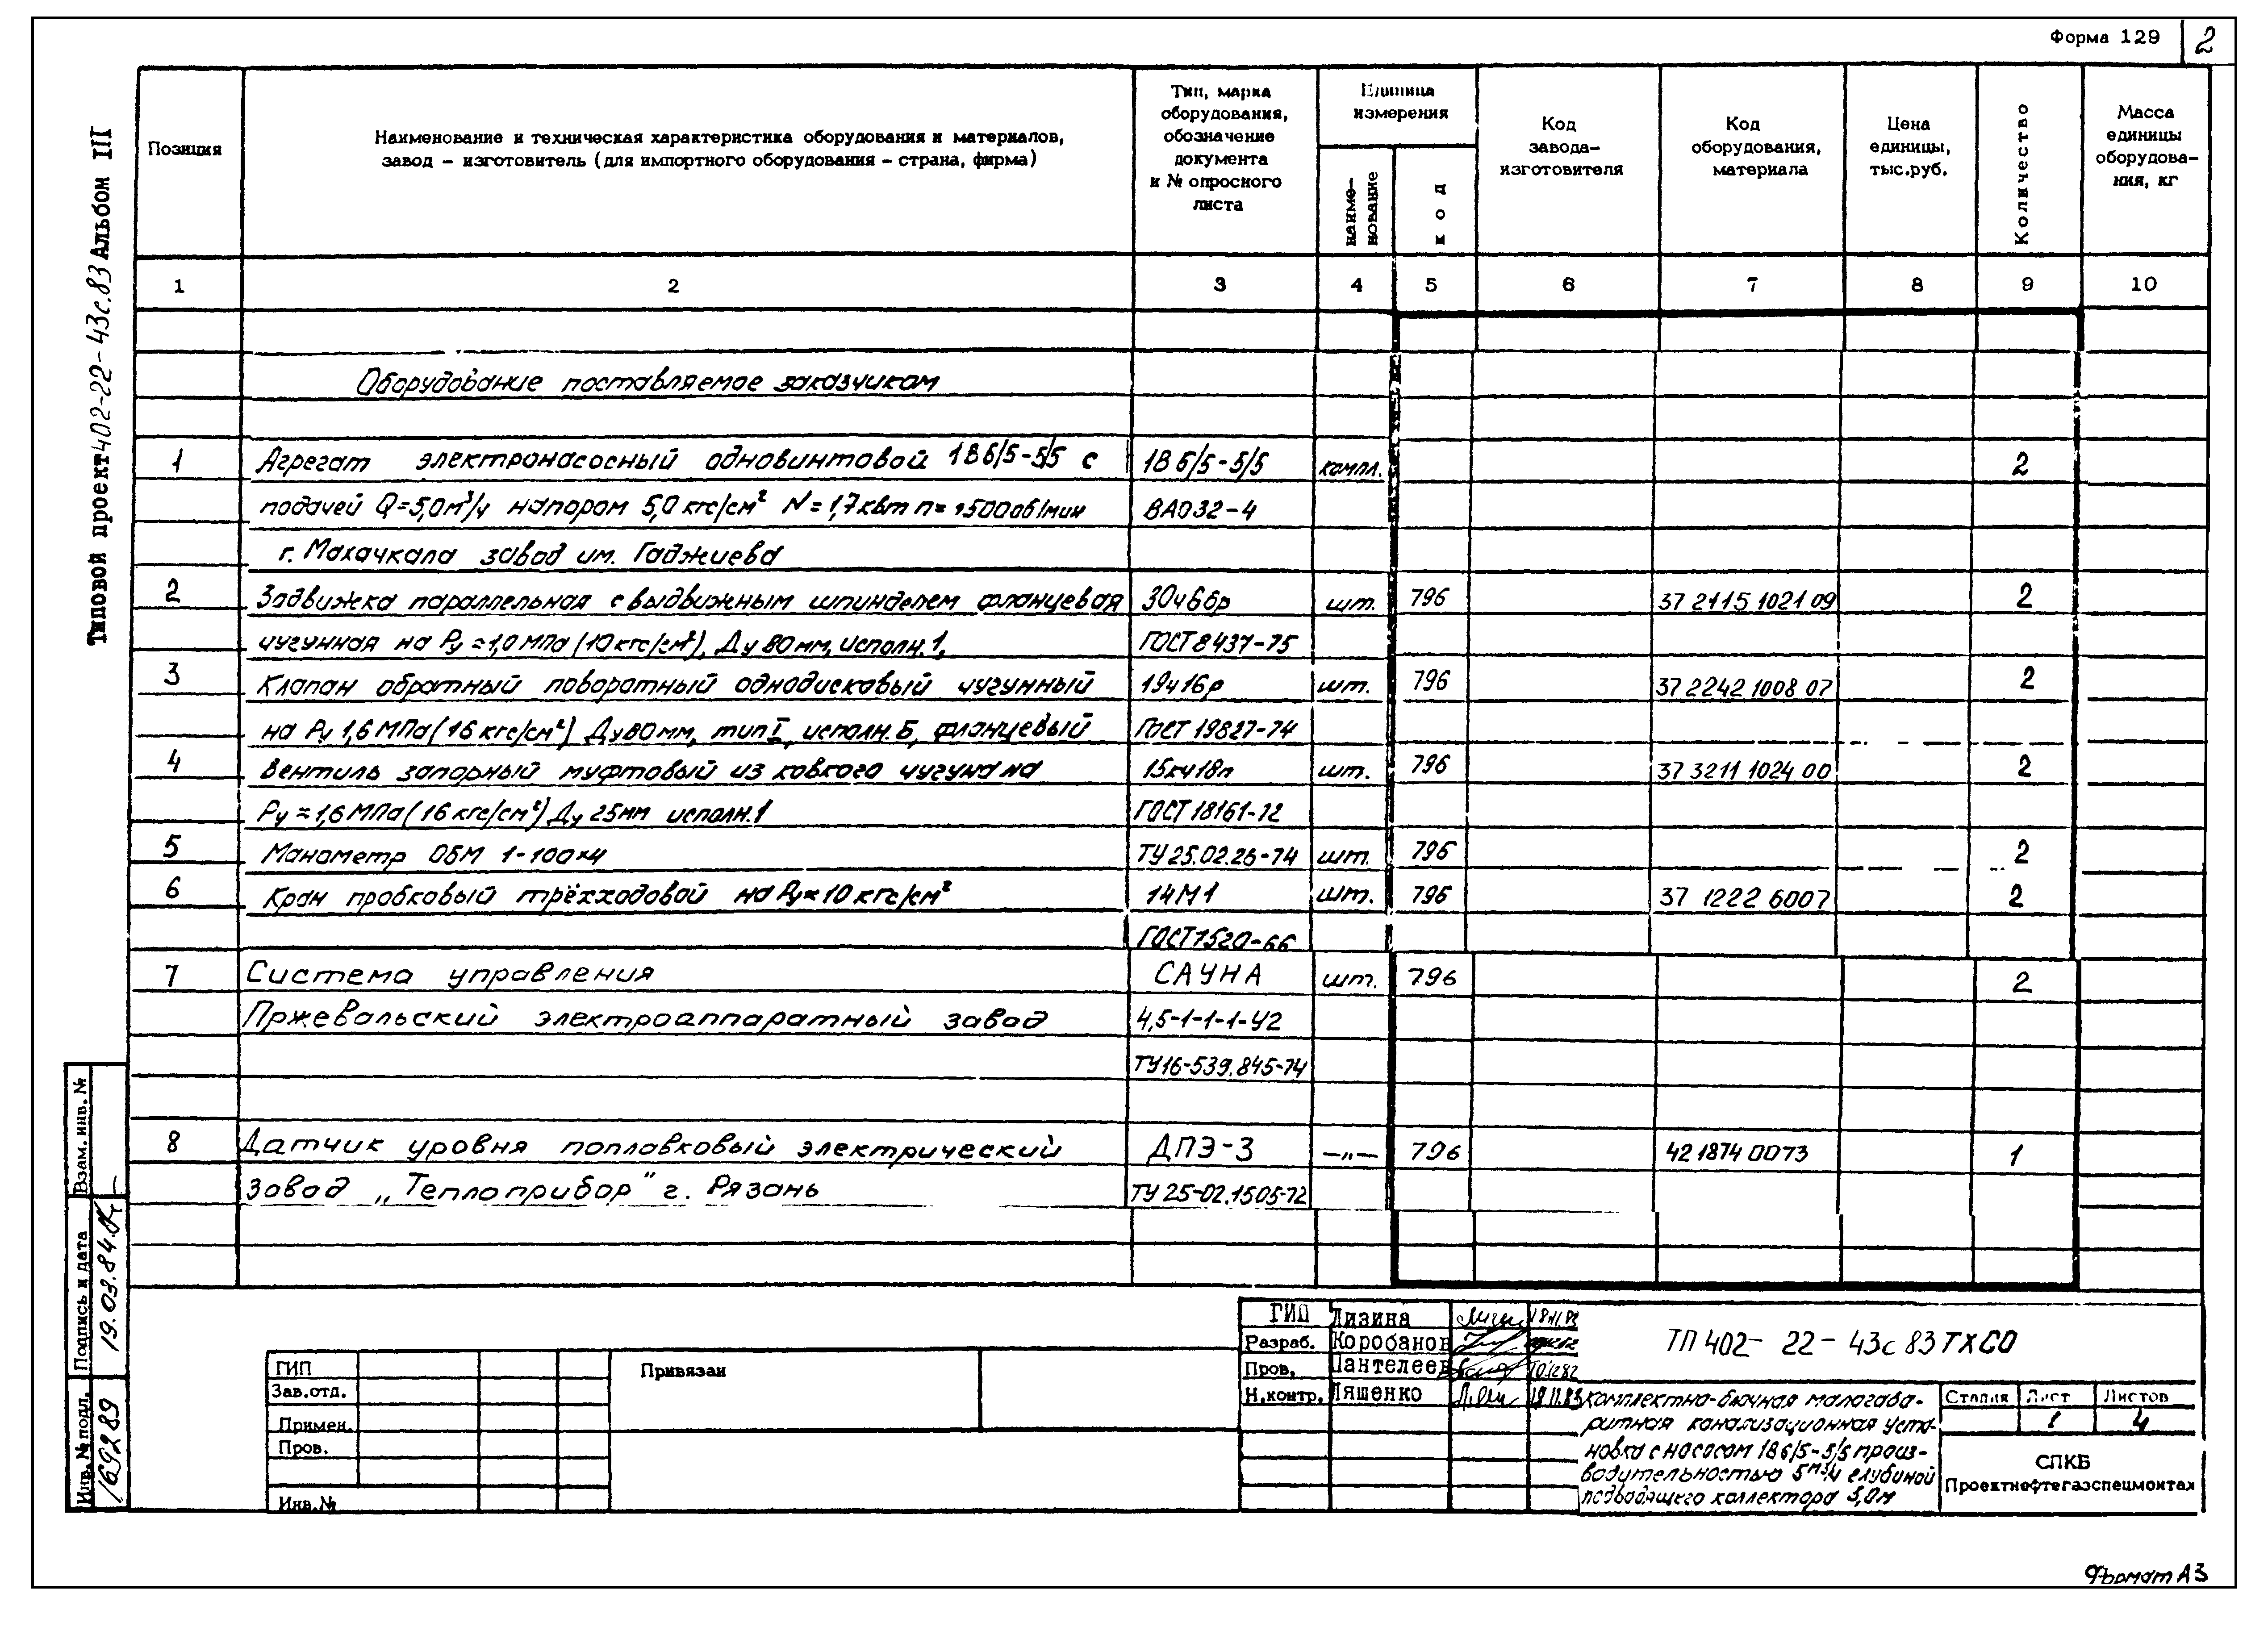 Форма 129
2
Типовой проект 402-22-43с.83 Альбом III
Позиция
Наименование и техническая характеристика оборудования и материалов,
завод - изготовитель (для импортного оборудования - страна, фирма)
Тип, марка
оборудования,
обозначение
документа
и № опросного
листа
Единица
измерения
наиме-
нование
код
Код
завода-
изготовителя
Код
оборудования,
материала
Цена
единицы,
тыс.руб.
Количество
Масса
единицы
оборудова-
ния, кг
1 2 3 4 5 6 7 8 9 10
Оборудование поставляемое заказчиком
1 Агрегат электронасосный одновинтовой 1В6/5-5/5 с 1В 6/5-5/5 компл. 2
подачей Q=5,0м³/ч напором 5,0 кгс/см² N=1,7квт n=1500об/мин ВАО32-4
г. Махачкала завод им. Гаджиева
2 Задвижка параллельная с выдвижным шпинделем фланцевая 30ч6бр шт. 796 37 2115 1021 09 2
чугунная на Ру=1,0МПа (10кгс/см²), Ду 80мм, исполн.1, ГОСТ 8437-75
3 Клапан обратный поворотный однодисковый чугунный 19ч16р шт. 796 37 2242 1008 07 2
на Ру 1,6МПа(16кгс/см²) Ду80мм, тип I, исполн. Б, фланцевый ГОСТ 19827-74
4 Вентиль запорный муфтовый из ковкого чугуна на 15кч18п шт. 796 37 3211 1024 00 2
Ру=1,6МПа(16кгс/см²) Ду 25мм исполн.1 ГОСТ 18161-72
5 Манометр ОБМ 1-100х4 ТУ25.02.26-74 шт. 796 2
6 Кран пробковый трёхходовой на Ру=10кгс/см² 14М1 шт. 796 37 1222 6007 2
ГОСТ7520-66
7 Система управления САУНА шт. 796 2
Пржевальский электроаппаратный завод 4,5-1-1-1-У2
ТУ16-539.845-74
8 Датчик уровня поплавковый электрический ДПЭ-3 —„— 796 42 1874 0073 1
Завод „Теплоприбор" г. Рязань ТУ25-02.1505-72
Взам. инв. №
Подпись и дата 19.03.84.
Инв. № подл. 169289
ГИП
Зав.отд.
Примен.
Пров.
Инв.№
Привязан
ГИП Лизина 18.11.83
Разраб. Коробанов
Пров. Пантелеев
Н.контр. Ляшенко 18.11.83
ТП 402- 22- 43с 83 ТХСО
комплектно-блочная малогаба-
ритная канализационная уста-
новка с насосом 1В6/5-5/5 произ-
водительностью 5м³/ч глубиной
подводящего коллектора 3,0м
Стадия Лист Листов
1 4
СПКБ
Проектнефтегазспецмонтаж
Формат А3